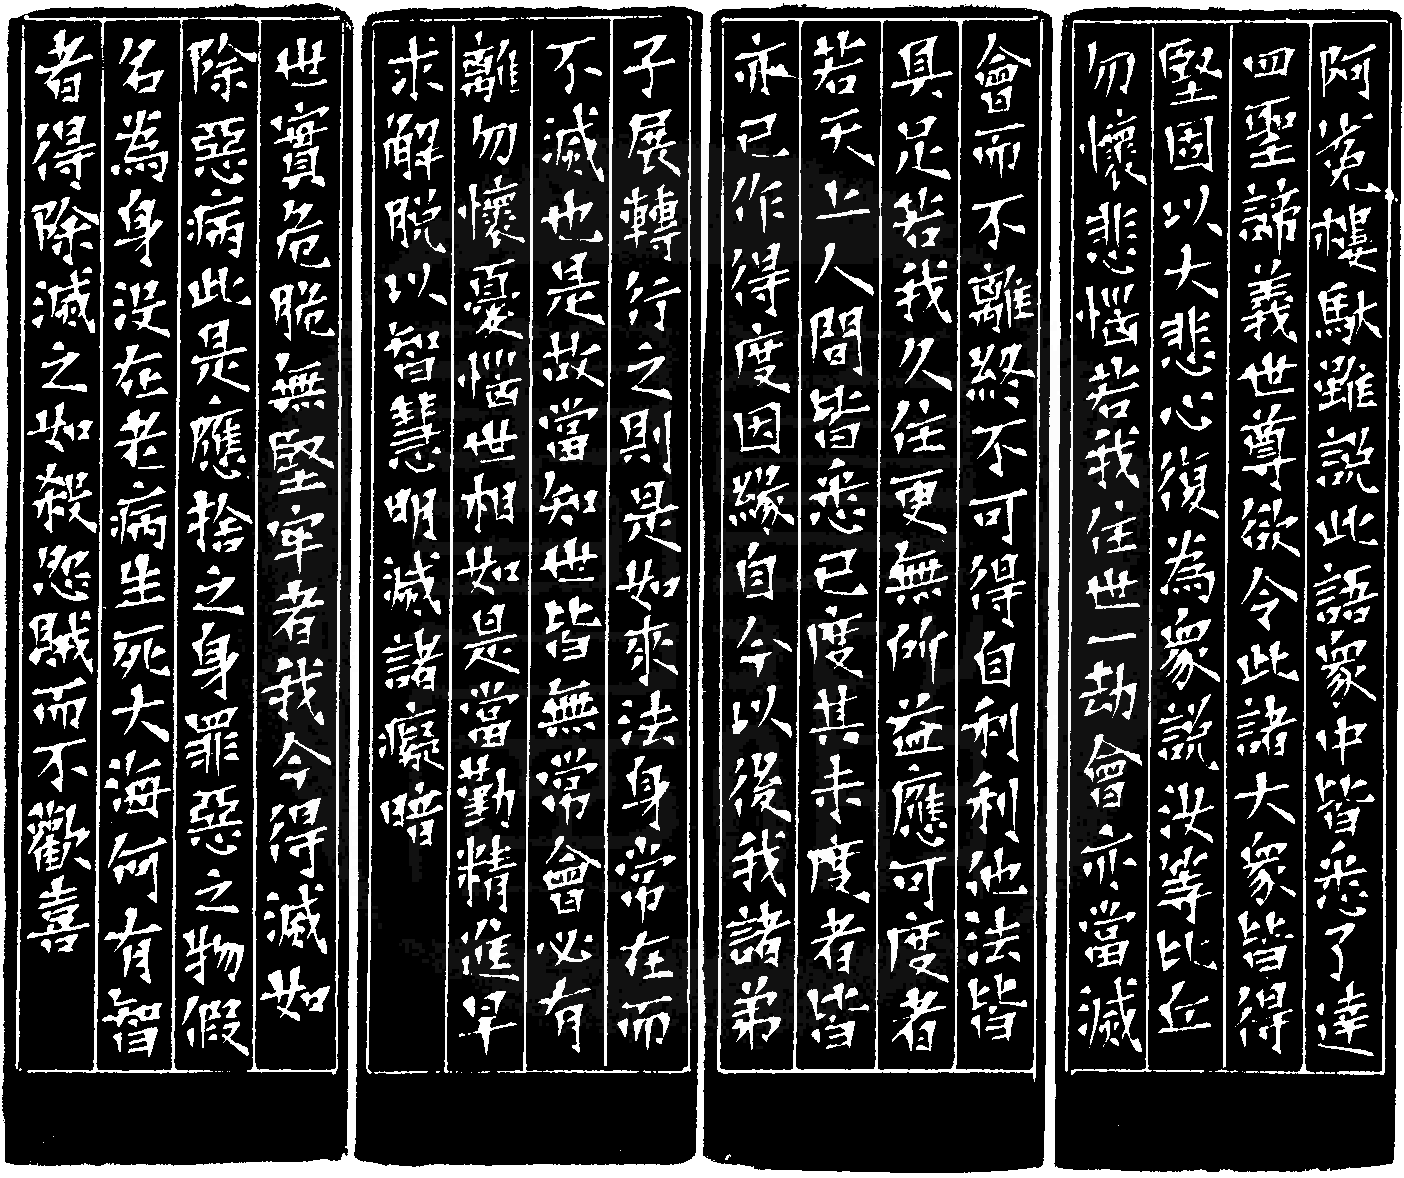 阿㝹樓馱雖說此語衆中皆悉了達
四聖諦義世尊欲令此諸大衆皆得
堅固以大悲心復為衆說汝等比丘
勿懷悲惱若我住世一劫會亦當滅
會而不離終不可得自利利他法皆
具足若我久住更無所益應可度者
若天上人間皆悉已度其未度者皆
亦已作得度因緣自今以後我諸弟
子展轉行之則是如來法身常在而
不滅也是故當知世皆無常會必有
離勿懷憂惱世相如是當勤精進早
求解脫以智慧明滅諸癡暗
世實危脆無堅牢者我今得滅如
除惡病此是應捨之身罪惡之物假
名為身沒在老病生死大海何有智
者得除滅之如殺怨賊而不歡喜